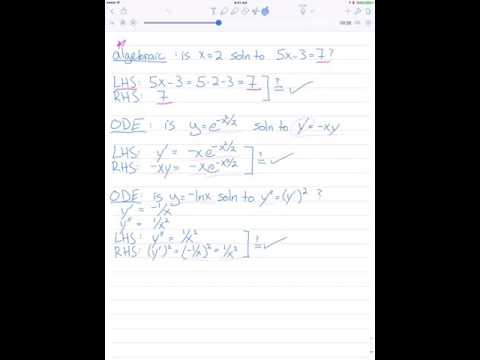 algebraic : is x=2 soln to 5x-3=7?
LHS: 5x-3=5·2-3=7
RHS: 7 ] ?= ✓
ODE: is y=e^(-x²/2) soln to y'=-xy
LHS: y' = -xe^(-x²/2)
RHS: -xy = -xe^(-x²/2) ] ?= ✓
ODE: is y=-lnx soln to y"=(y')² ?
y' = -1/x
y" = 1/x²
LHS: y" = 1/x²
RHS: (y')² = (-1/x)² = 1/x² ] ?= ✓